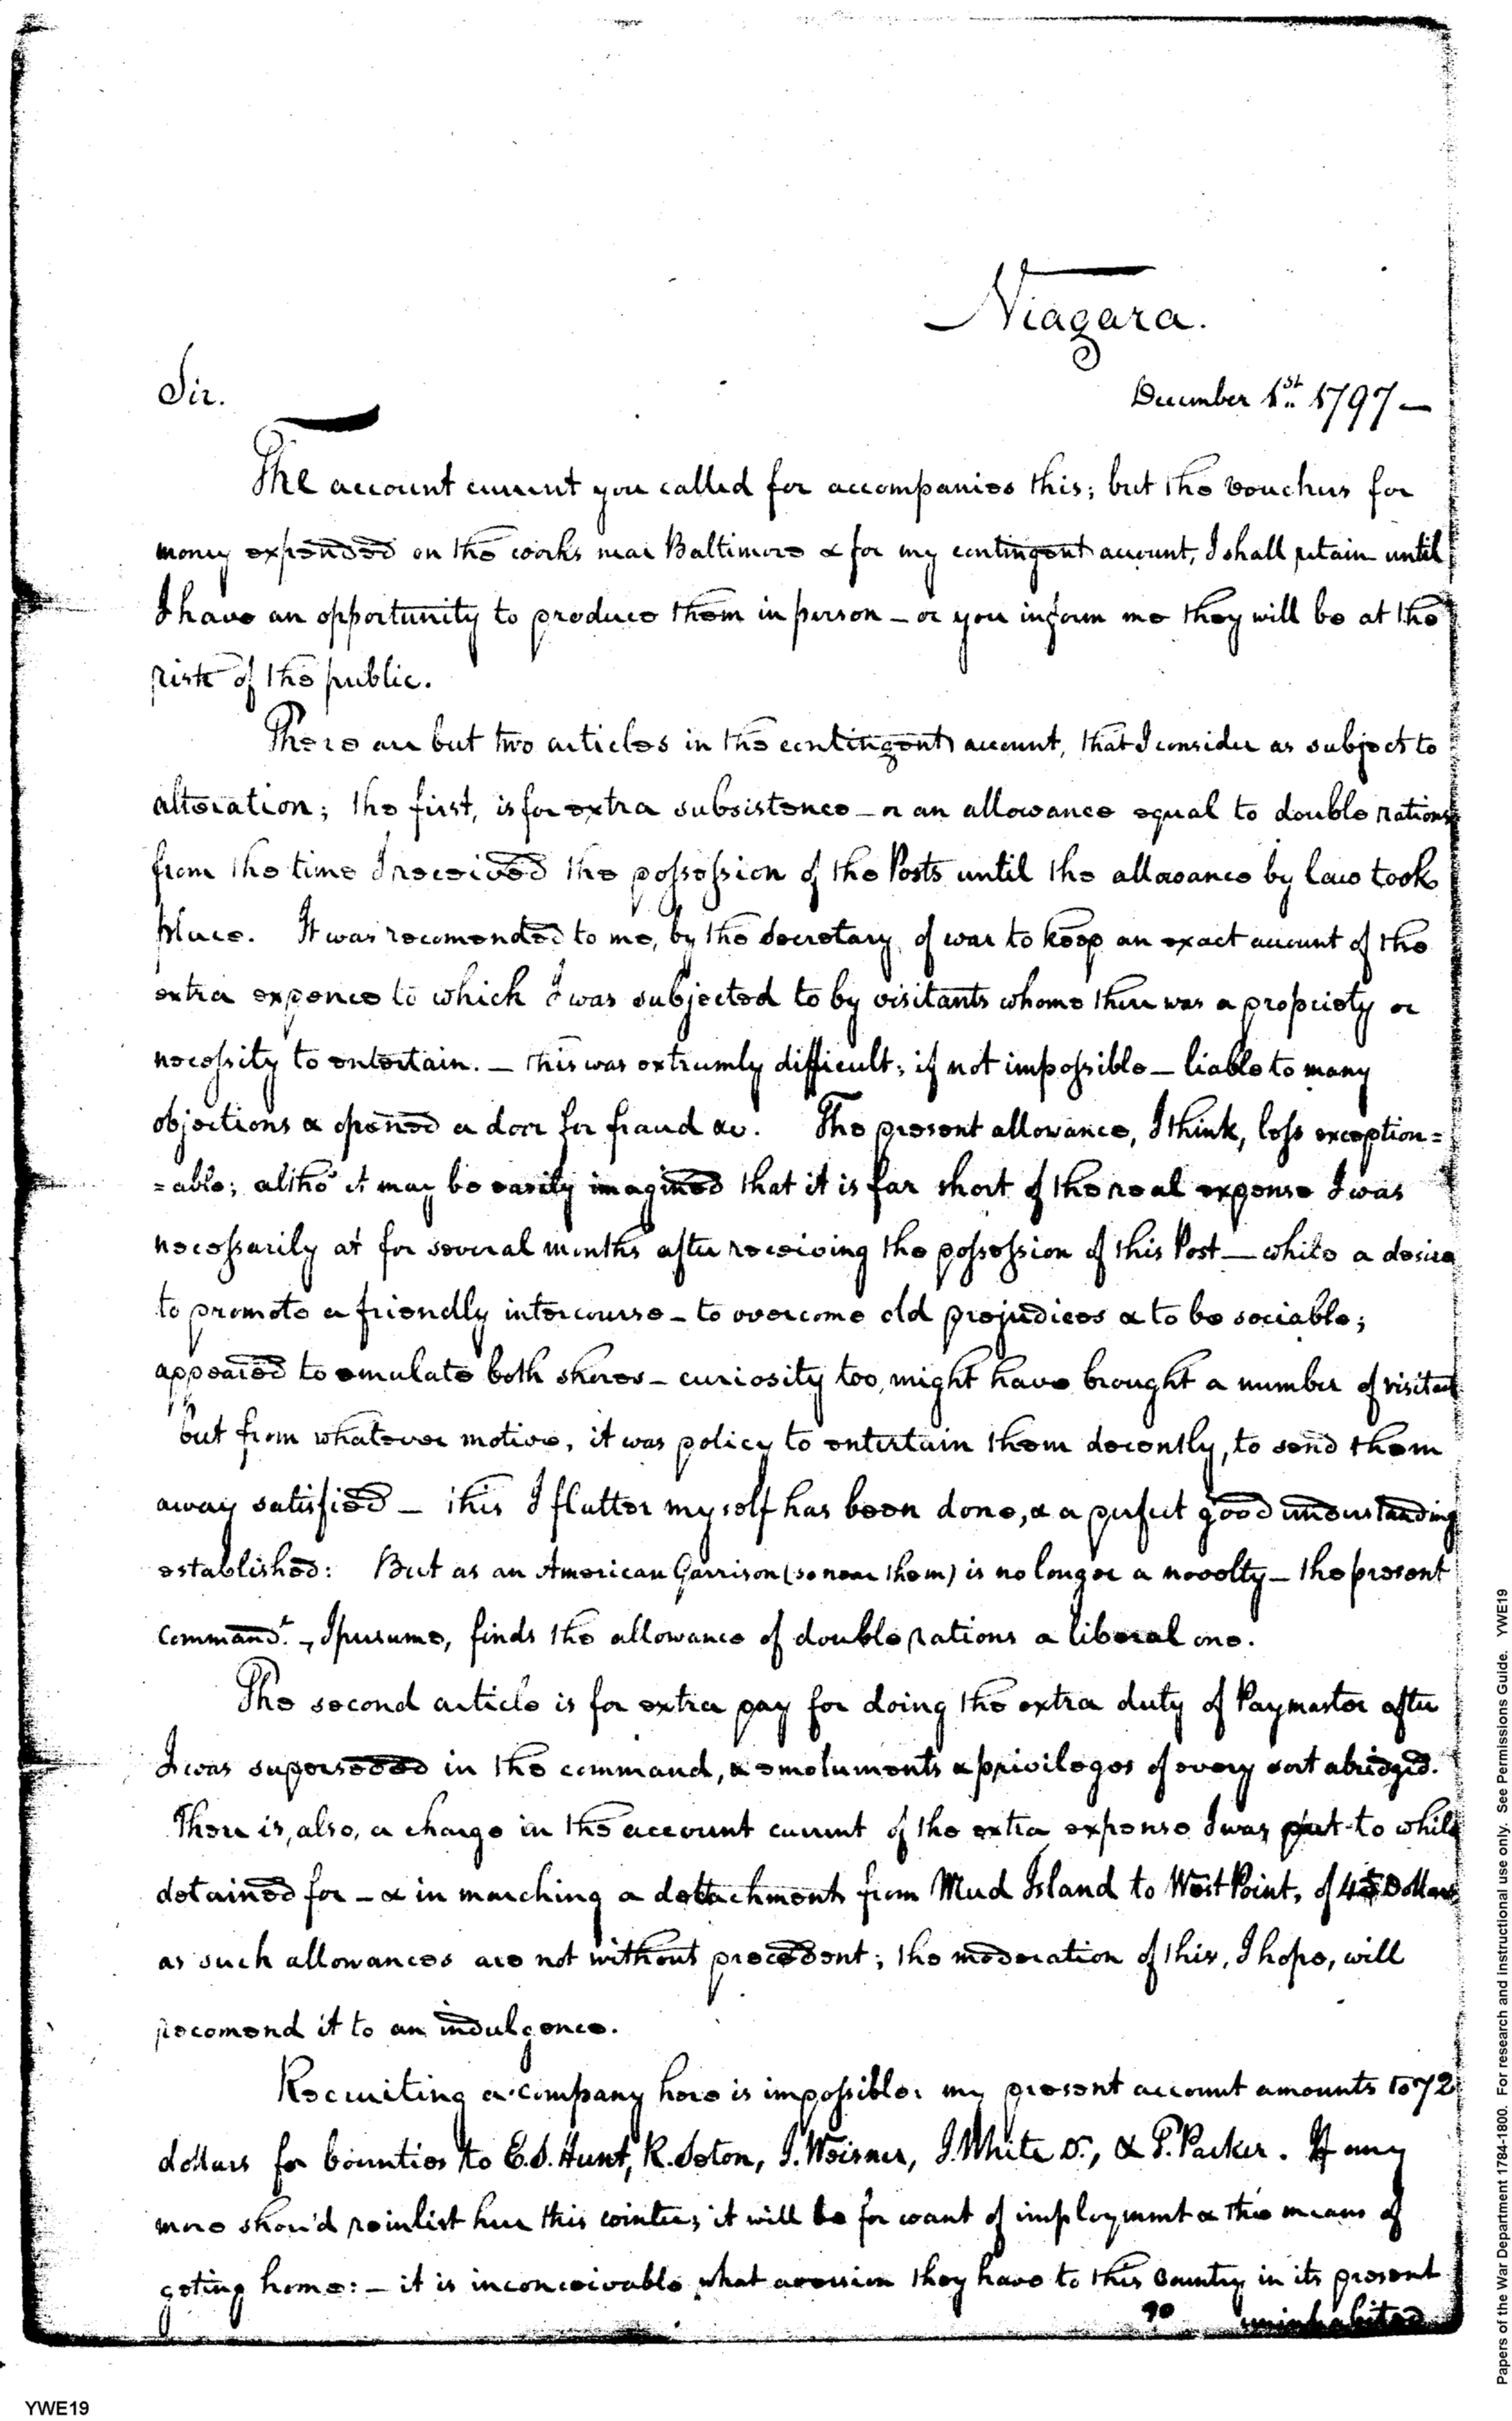 Niagara.
Sir.
December 1st. 1797 —
The account current you called for accompanies this; but the vouchers for
money expended on the works near Baltimore & for my contingent account, I shall retain until
I have an opportunity to produce them in person – or you inform me they will be at the
risk of the public.
There are but two articles in the contingent account, that I consider as subject to
alteration; the first, is for extra subsistence – or an allowance equal to double rations
from the time I received the possession of the Posts until the allowance by law took
place. It was recomended to me, by the Secretary of war to keep an exact account of the
extra expence to which I was subjected to by visitants whome there was a propriety or
necessity to entertain. — This was extreemly difficult; if not impossible – liable to many
objections & opened a door for fraud &c. The present allowance, I think, less exception=
=able; altho' it may be easily imagined that it is far short of the real expense I was
necessarily at for several months after receiving the possession of this Post — while a desire
to promote a friendly intercourse – to overcome old prejudices & to be sociable;
appeared to emulate both shores – curiosity too, might have brought a number of visitant
but from whatever motive, it was policy to entertain them decently, to send them
away satisfied – this I flatter myself has been done, & a perfect good understanding
established: But as an American Garrison (so near them) is no longer a novelty – the present
Commandt. , I presume, finds the allowance of double rations a liberal one.
The second article is for extra pay for doing the extra duty of Paymaster after
I was superseeded in the command, & emoluments & privileges of every sort abridged.
There is, also, a charge in the account current of the extra expense I was put to while
detained for – & in marching a detachment from Mud Island to West Point, of 45 Dollars
as such allowances are not without precedent; the moderation of this, I hope, will
recomend it to an indulgence.
Recruiting a company here is impossible: my present account amounts to 72
dollars for bounties to E.S. Hunt, R. Seton, J. Weisner, J. White D., & P. Parker. If any
more shou'd reinlist here this winter; it will be for want of imployment & the means of
geting home: – it is inconceivable what aversion they have to this Country in its present
90 uninhabited
Papers of the War Department 1784-1800. For research and instructional use only. See Permissions Guide. YWE19
YWE19